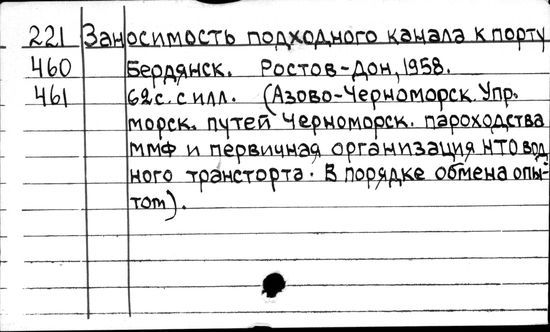 221 Заносимость подходного канала к порту
460 Бердянск. Ростов-Дон, 1958.
461 62с. с илл. (Азово-Черноморск. Упр.
морск. путей Черноморск. пароходства
ММФ и первичная организация НТО вод
ного транспорта. В порядке обмена опы-
том).